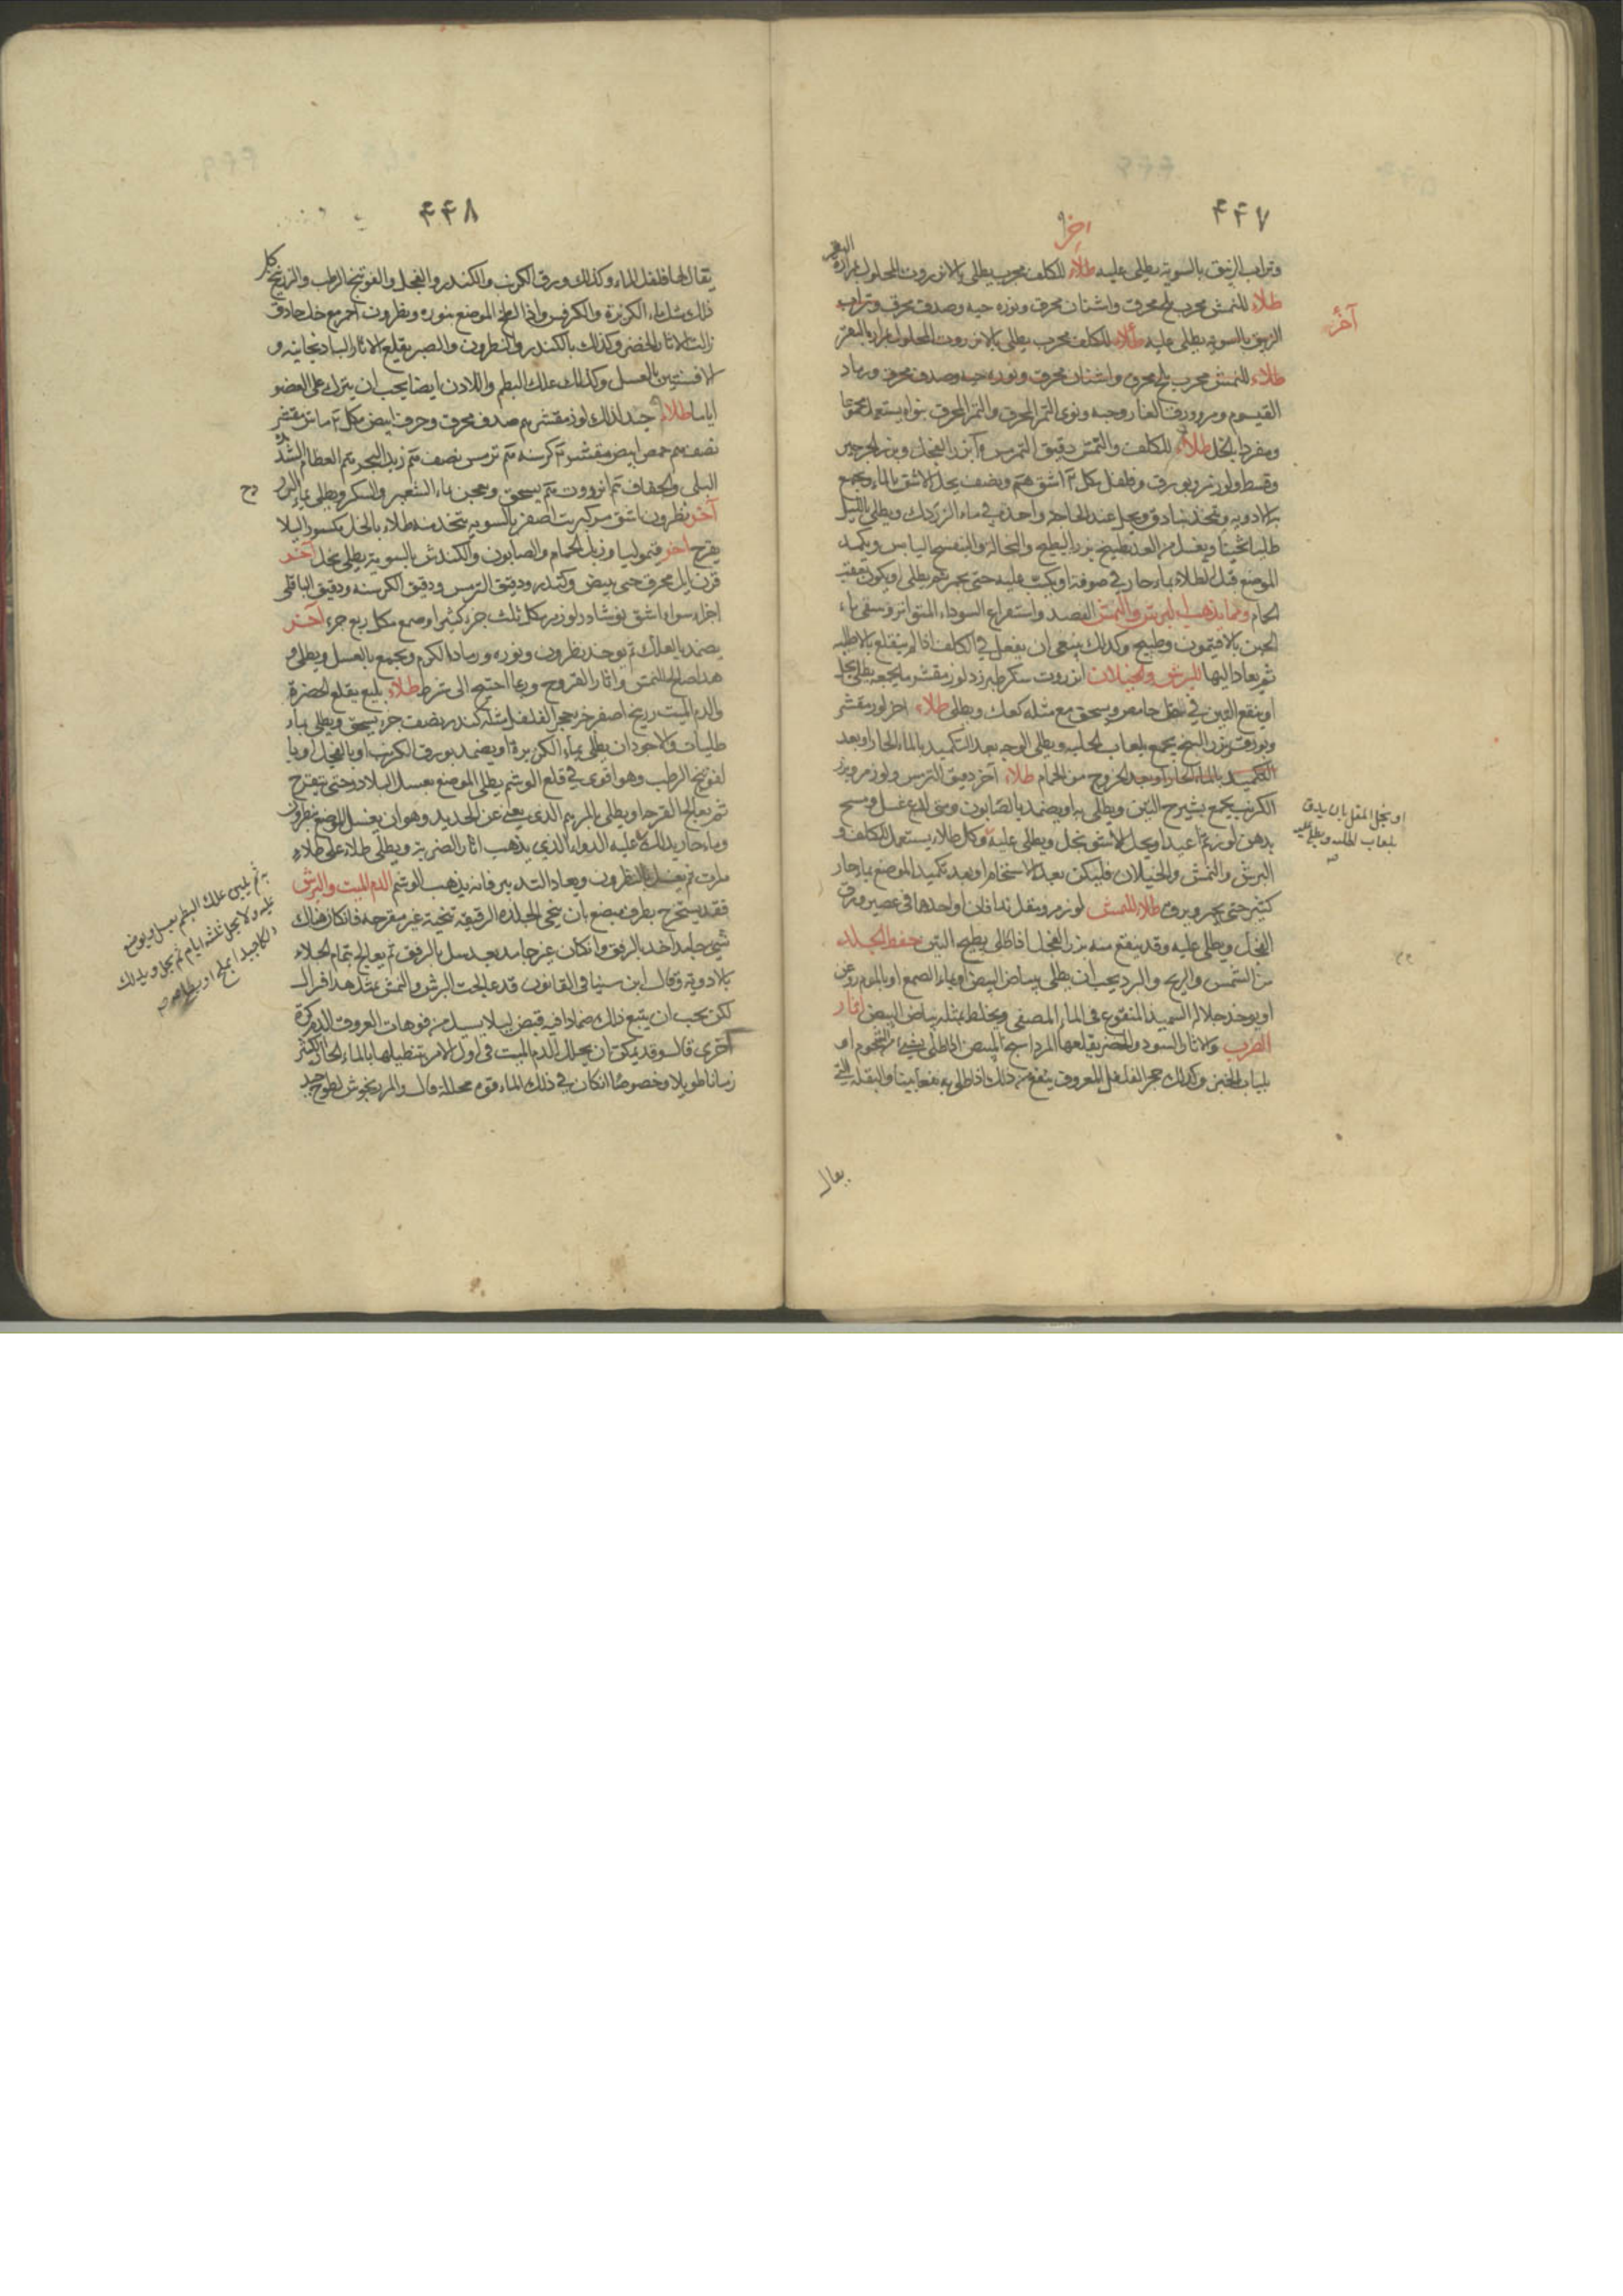 ٤٤٧
آخر
وتراب الزيبق بالسوية يطلى عليه طلاء للكلف مجرب يطلى بالانزروت المحلول بمرارة البقر
طلاء للنمش مجرب ملح محرق واشنان محرق ونوره حيه وصدف محرق وتراب
آخر
الزيبق بالسوية يطلى عليه طلاء للكلف مجرب يطلى بالانزروت المحلول بمرارة البقر
طلاء للنمش مجرب ملح محرق واشنان محرق ونوره حيه وصدف محرق ورماد
القيسوم ونوى التمر المحرق والتمر المحرق بنواه يستعمل مجموعا
ومفردا بالخل طلاء للكلف والنمش دقيق الترمس وبزر الفجل وبزر الجرجير
وقسط ولوز مر وبورق وفلفل مكل اشق ونصف يحل الاشق بالماء ويجمع
به الادويه ويتخذ بنادق ويحل عند الحاجة واحده في ماء ويطلى بالليل
طليا ثخينا ويغسل من الغد بطبيخ بزر البطيخ والنخاله والبنفسج اليابس ويكمد
الموضع قبل الطلاء بماء حار في صوفة او يكب عليه حتى يحمر ثم يطلى او يكون بعقب
الحمام ومما يذهب البرش والنمش الفصد واستفراغ السوداء المتواتر وسقى ماء
الجبن بالافتيمون وطبيخه وكذلك ينبغي ان يفعل في الكلف اذا لم ينقلع بالاطليه
ثم يعاد اليها للبرش والخيلان انزروت سكر طبرزد لوز مقشر يجمعه يطلى بخل
او ينقع التين في خل حامض ويسحق مع مثله كعك ويطلى طلاء اخر لوز مقشر
وبورق بزر البنج يجمع بلعاب الحلبه ويطلى الوجه بعد التكميد بالماء الحار او بعد
التكميد بالماء الحار او بعد الخروج من الحمام طلاء آخر دقيق الترمس ولوز مر وبزر
الكرنب يجمع بشيرج التين ويطلى به او يضمد بالصابون ومتى لدع غسل ومسح
او يحل المقل بان يدق
بلعاب الحلبه ويطلى عليه
بدهن لوز ثم اعيد او يحل الاشق بخل ويطلى عليه وكل طلاء يستعمل للكلف و
البرش والنمش والخيلان فليكن بعد الاستحمام او بعد تكميد الموضع بماء حار
كثير حتى يحمر ويرق طلاء للنمش لوز مر ومقل يدافان او احدهما في عصير ورق
الفجل ويطلى عليه وقد ينفع منه بزر الفجل اذا طلى بطبيخ التين حفظ الجلد
من الشمس والريح والبرد يجب ان يطلى ببياض البيض او بماء الصمغ او بالموم روغن
او يوخذ حلاله السميد المنقوع في الماء المصفى ويخلط بمثله بياض البيض آثار
الضرب والاثار السود والخضر يقلعها المرداسنج المبيض اذا طلى بشيء من الشحوم او
بلباب الخبز وكذلك حجر الفلفل المعروف ينفع من ذلك اذا طلى به نفعا بينا والبقلة التي
يقال
٤٤٨
يقال لها فلفل الماء وكذلك ورق الكرنب والكندر والفجل والفوتنج الرطب والزرنيخ كل
ذلك بماء الكزبرة والكرفس واذا الموضع بنوره ونطرون احمر مع خل حاذق
زالت الاثار الخضر وكذلك بالكندر والنطرون والصبر يقلع الاثار الباذنجانيه و
الافسنتين بالعسل وكذلك علك البطم واللادن ايضا يجب ان يترك على العضو
اياما طلاء جيد لذلك لوز مقشر صدف محرق وخرف ابيض مكل ماش مقشر
نصف حمص ابيض مقشر كرسنه ترمس نصف زبد البحر العظام
البلى والجفاف انزروت يسحق ويعجن بماء الشعير والسكر ويطلى بماء البزر
آخر نطرون اشق مر كبريت اصفر بالسويه يتخذ منه طلاء بالخل مكسور ليلا
يقرح آخر قيموليا وزبل الحمام والصابون والكندش بالسوية يطلى بخل آخر
قرن ايل محرق حتى يبيض وكندر ودقيق الترمس ودقيق الكرسنه ودقيق الباقلى
اجزاء سواء اشق نوشادر لوز مر مكل ثلث جزء كثيرا وصمغ مكل ربع جزء آخر
يضمد بالعلك ثم يوخذ نطرون ونوره ورماد الكرم ويجمع بالعسل ويطلى و
هذا صالح للنمش واثار القروح وربما احتيج الى شرط طلاء بليغ يقلع الخضرة
والدم الميت زرنيخ اصفر جزء حجر الفلفل مثله كندر نصف جزء يسحق ويطلى بماء
طليات والاجود ان يطلى بماء الكزبرة او يضمد بورق الكرنب او بالفجل او با
لفوتنج الرطب وهو اقوى في قلع الوشم يطلى الموضع بعسل البلادر حتى يتقرح
ثم يعالج القرحه او يطلى بالمرهم الذي يغني عن الحديد وهو ان يغسل الموضع بنطرون
وماء حار يدلك عليه الدواء الذي يذهب اثار الضربة ويطلى طلاء على طلاء
مرات ثم يغسل بالنطرون ويعاد التدبير فانه يذهب الوشم الدم الميت والبرش
به ثم يلبس علك البطم بعسل ويوضع
عليه ولا يحل ثلثة ايام ثم يحل ويدلك
فقد يستخرج بطرف مبضع بان ينحى الجلدة الرقيقه تنحية غير مقرحه فان كان هناك
شيء جامد اخذ بالرفق وان كان غير جامد بعد سل بالرفق ثم يعالج بتمام الجلاء
بالادوية وقال ابن سينا في القانون قد عالجت البرش والنمش بمثل هذا فزال
لكن يجب ان يتبع ذلك ضمادا فيه قبض ليلا يسيل من فوهات العروق الدم كرة
اخرى قال وقد يمكن ان يحلل الدم الميت في اول الامر بتنطيلها بالماء الحار الكثير
زمانا طويلا وخصوصا ان كان في ذلك الماء قوه محللة قال والمرزنجوش لطوخ جيد